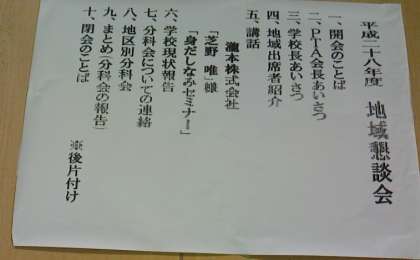 平成二十八年度 地域懇談会
一、開会のことば
二、PTA会長あいさつ
三、学校長あいさつ
四、地域出席者紹介
五、講話
瀧本株式会社
「芝野 唯」様
「身だしなみセミナー」
六、学校現状報告
七、分科会についての連絡
八、地区別分科会
九、まとめ(分科会の報告)
十、閉会のことば
※後片付け